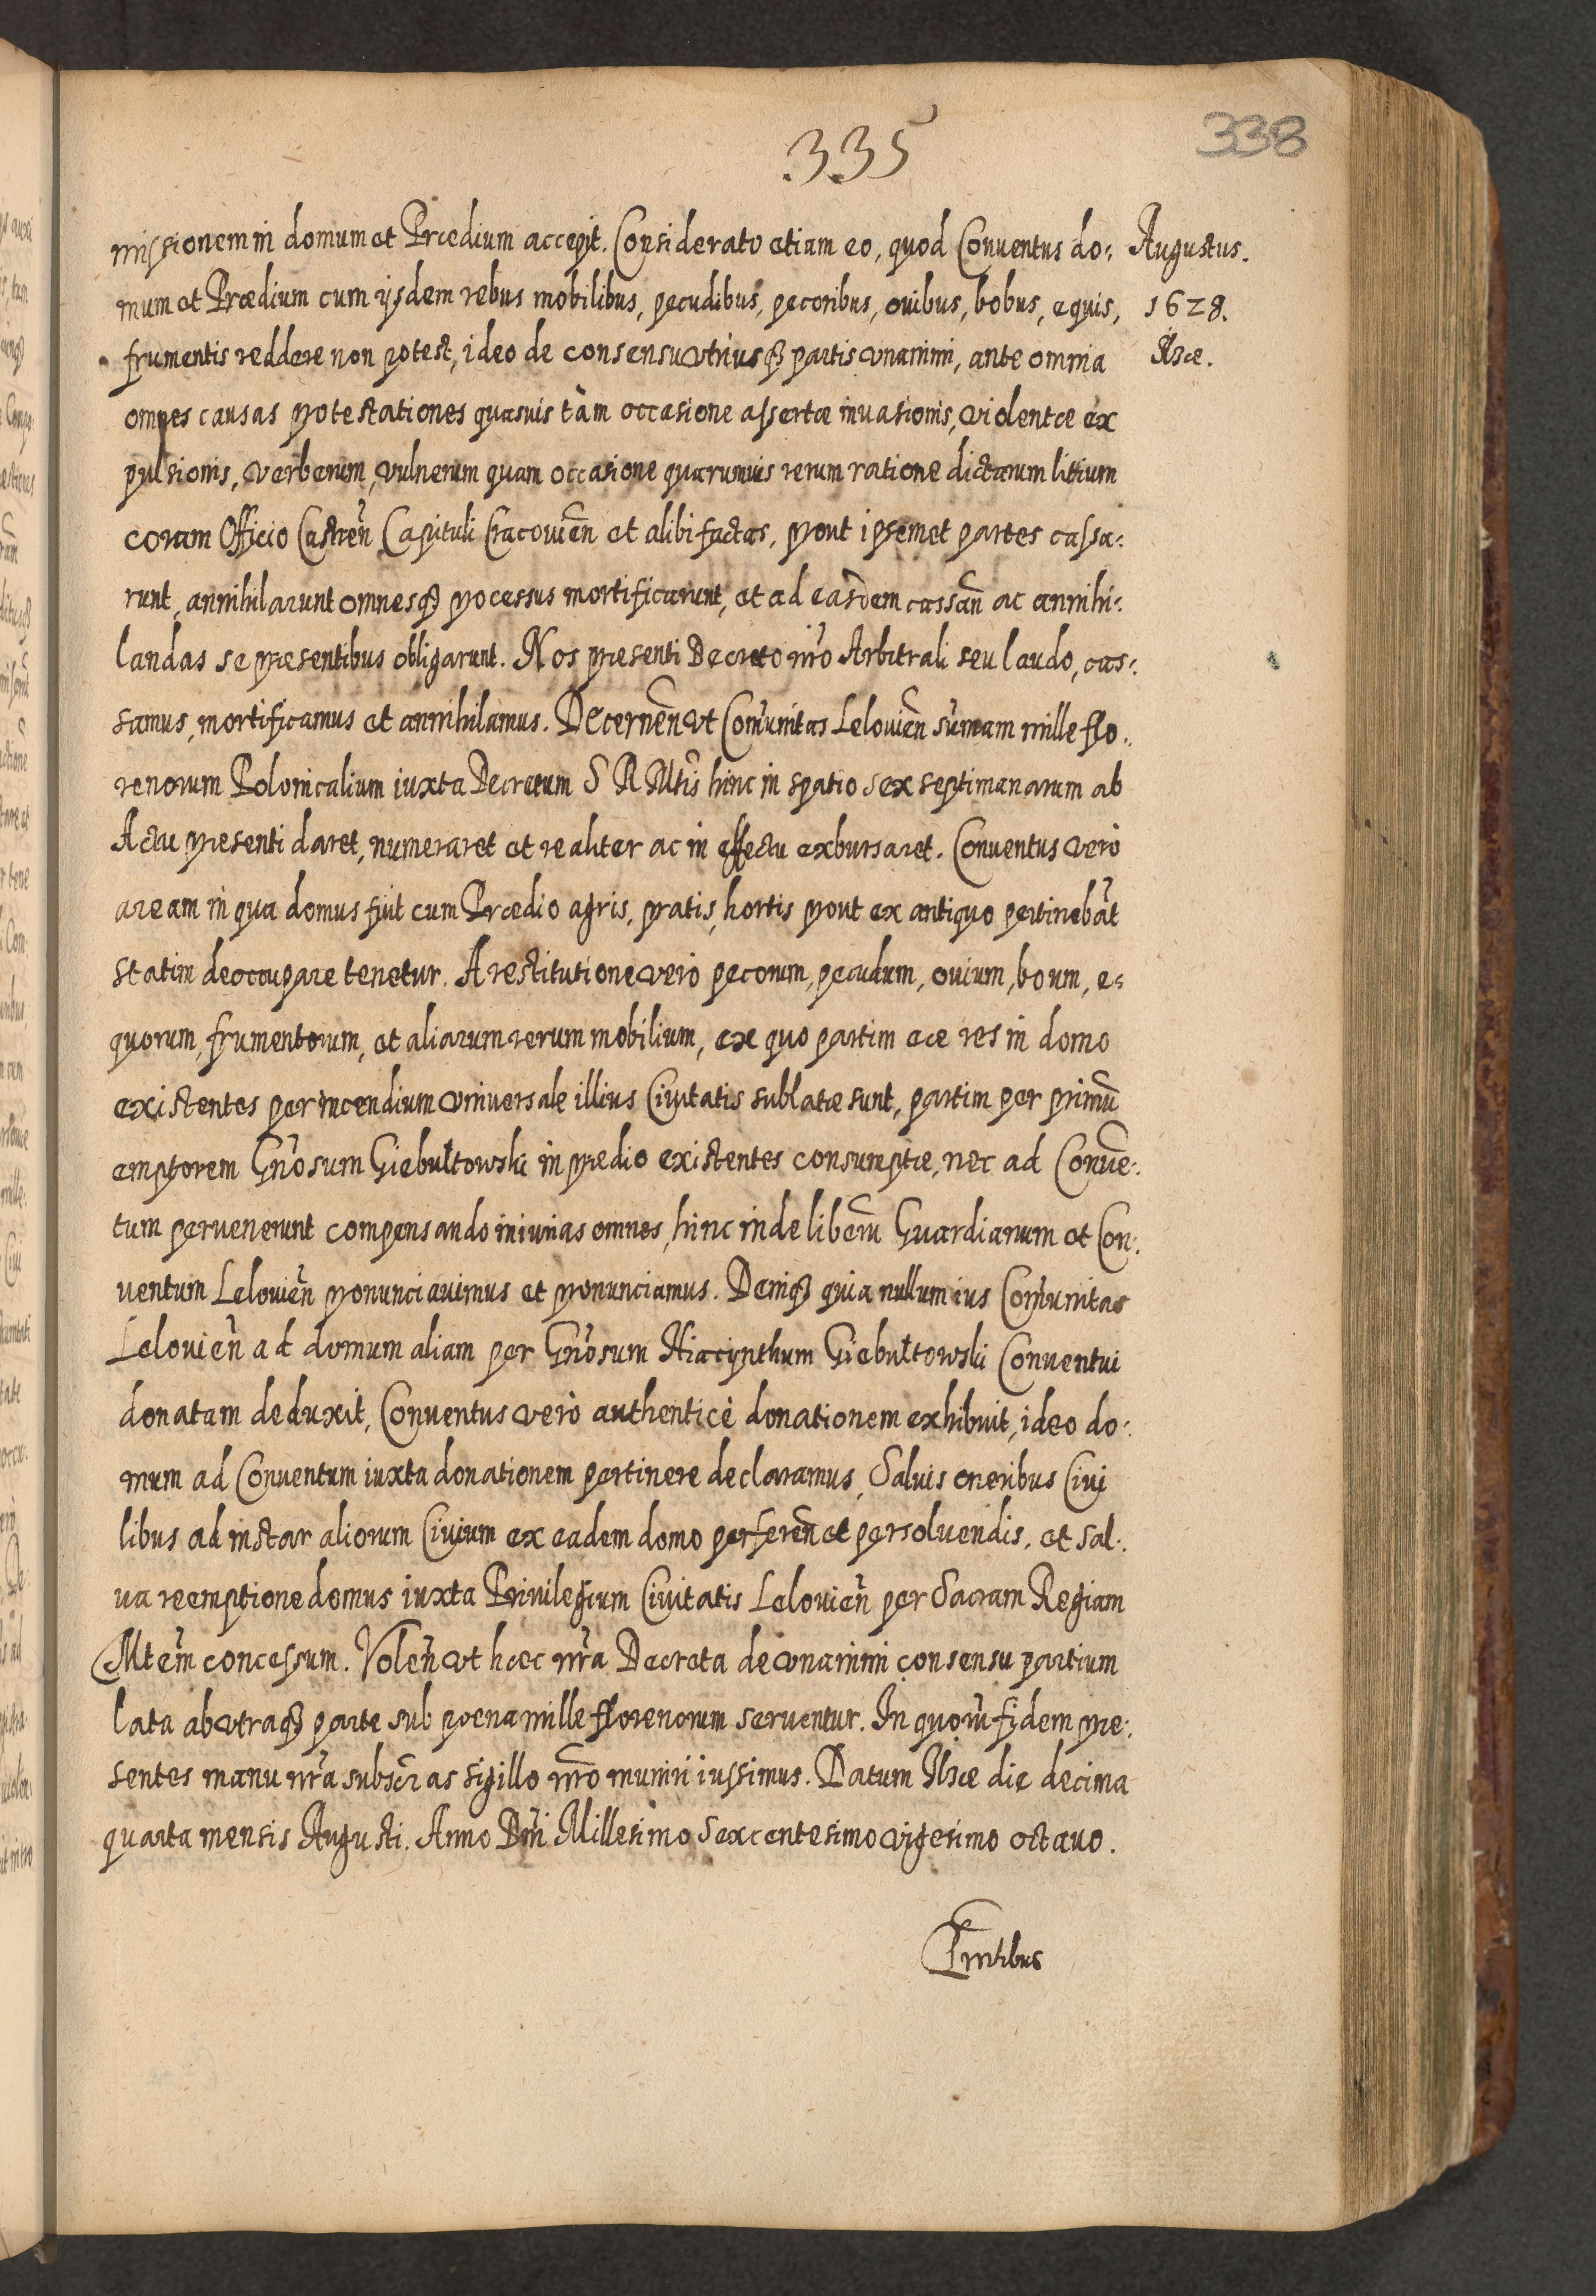 335
338
missionem in domum et Prædium accepit. Considerato etiam eo, quod Conuentus do: Augustus.
mum et Prædium cum ijsdem rebus mobilibus, pecudibus, pecoribus, ouibus, bobus, equis, 1628.
frumentis reddere non potest, ideo de consensu vtriusq3 partis vnanimi, ante omnia Ilzæ.
omnes causas protestationes quasuis tàm occasione assertæ inuasionis, violentæ ex
pulsionis, verberum, vulnerum quam occasione quarumuis rerum ratione dictarum litium
coram Officio Castreñ Capituli Cracouieñ et alibi factas, prout ipsemet partes cassa:
runt, annihilarunt omnesq3 processus mortificarunt, et ad easdem cassañ ac annihi:
landas se præsentibus obligarunt. Nos præsenti Decreto nr̃o Arbitrali seu laudo, cas:
samus, mortificamus et annihilamus. Decerneñ vt Com̃unitas Lelouieñ sum̃am mille flo:
renorum Polonicalium iuxta Decretum S R Mt̃is hinc in spatio sex septimanarum ab
Actu præsenti daret, numeraret et realiter ac in effectu exbursaret. Conuentus verò
aream in qua domus fuit cum Prædio agris, pratis, hortis prout ex antiquo pertinebãt
statim deoccupare tenetur. A restitutione verò pecorum, pecudum, ouium, boum, e:
quorum, frumentorum, et aliarum rerum mobilium, ex quo partim eæ res in domo
existentes per incendium vniuersale illius Ciuitatis sublatæ sunt, partim per primũ
emptorem Gñosum Giebułtowski in prædio existentes consumptæ, nec ad Conuẽ:
tum peruenerunt compensando iniurias omnes, hinc inde liberũ Guardianum et Con:
uentum Lelouieñ pronunciauimus et pronunciamus. Deniq3 quia nullum ius Com̃unitas
Lelouieñ ad domum aliam per Gñosum Hiacynthum Giebułtowski Conuentui
donatam deduxit, Conuentus verò authenticè donationem exhibuit, ideo do:
mum ad Conuentum iuxta donationem pertinere declaramus, Saluis oneribus Ciui
libus ad instar aliorum Ciuium ex eadem domo pereren̄ et persoluendis, et sal:
ua reemptione domus iuxta Priuilegium Ciuitatis Lelouieñ per Sacram Regiam
Mtẽm concessum. Voleñ vt hæc nr̃a Decreta de vnanimi consensu partium
lata ab vtraq3 parte sub poena mille florenorum seruentur. In quorũ fidem præ:
sentes manu nr̃a subscr̃as sigillo nr̃o muniri iussimus. Datum Ilzæ die decima
quarta mensis Augusti. Anno Dñi Millesimo Sexcentesimo vigesimo octauo.
Prñtibus